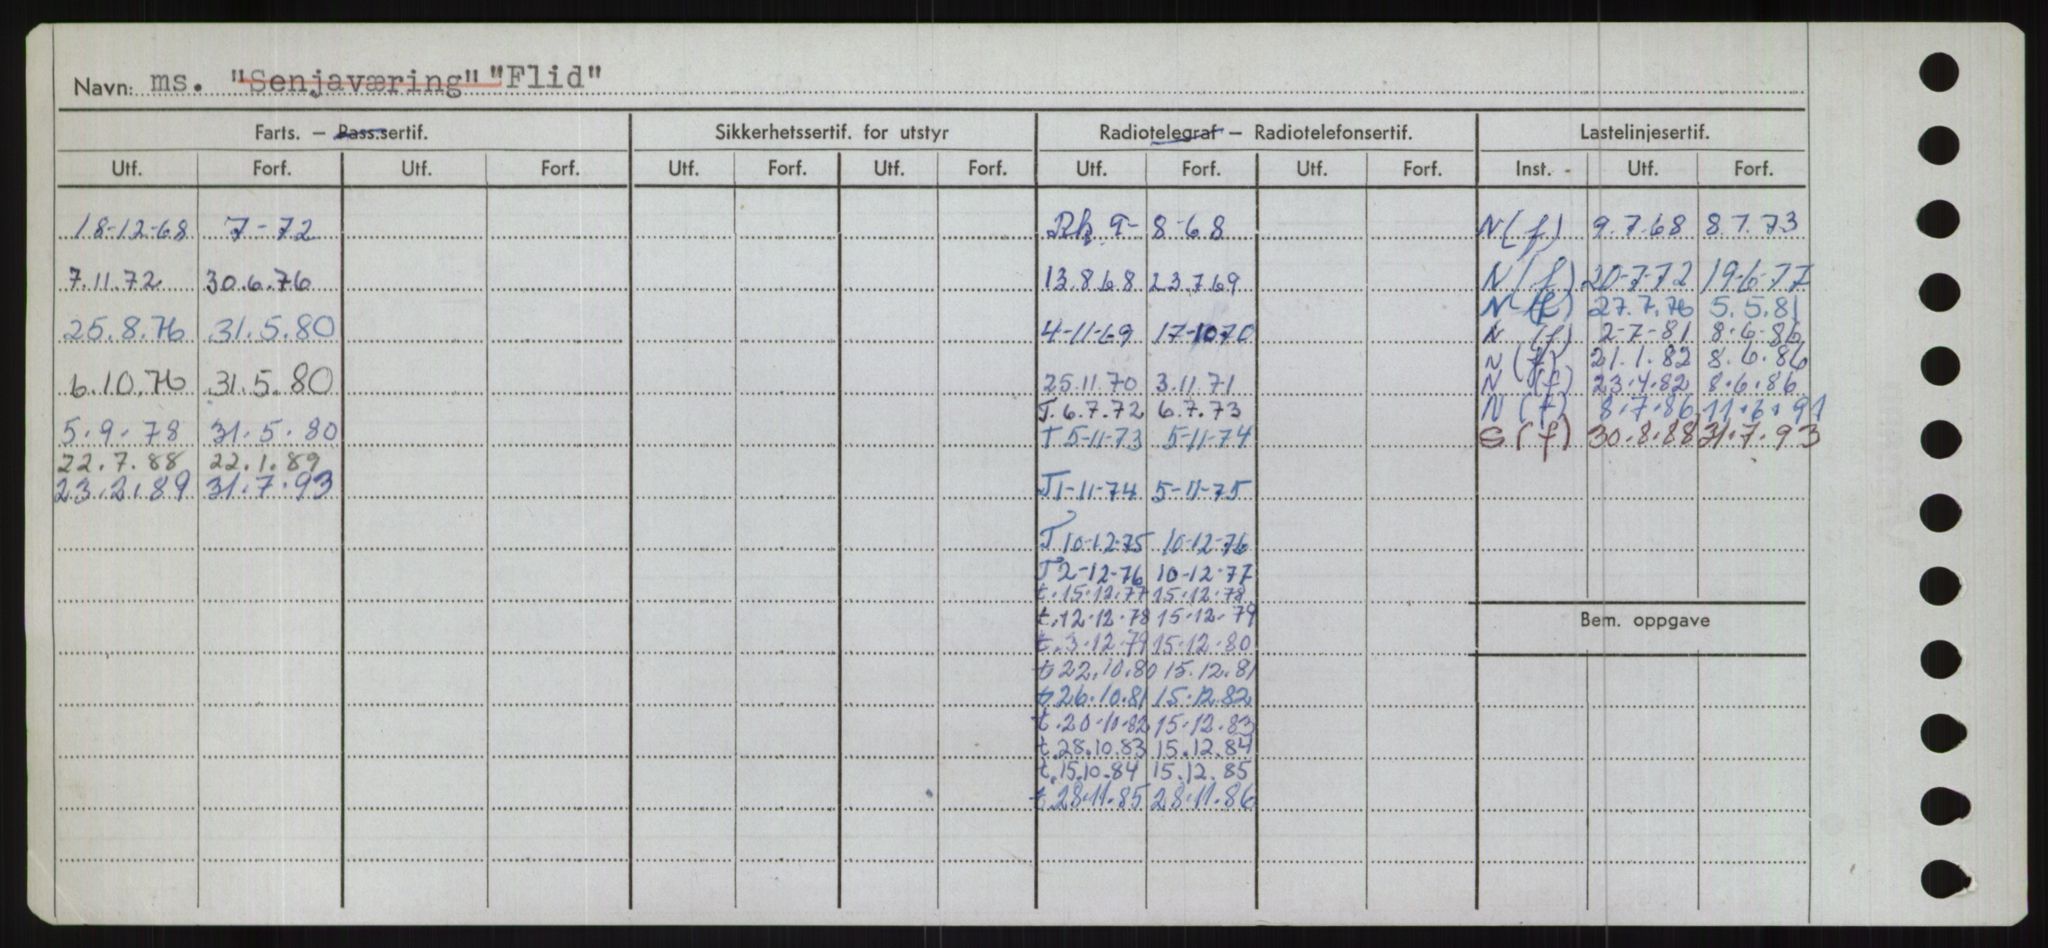 Navn: ms. "Senjaværing" "Flid"
Farts. – Pass.sertif. Sikkerhetssertif. for utstyr Radiotelegraf – Radiotelefonsertif. Lastelinjesertif.
Utf. Forf. Utf. Forf. Utf. Forf. Utf. Forf. Utf. Forf. Utf. Forf. Inst. - Utf. Forf.
18-12-68 7-72
7.11.72 30.6.76
25.8.76 31.5.80
6.10.76 31.5.80
5.9.78 31.5.80
22.7.88 22.1.89
23.2.89 31.7.93
8-68
13.8.68 23.7.69
4-11-69 17-10 70
25.11.70 3.11.71
T. 6.7.72 6.7.73
T 5-11-73 5-11-74
T 1-11-74 5-11-75
T 10-12-75 10-12-76
T 2-12-76 10-12-77
t. 15.12.77 15.12.78
t. 12.12.78 15.12.79
t. 3.12.79 15.12.80
t 22.10.80 15.12.81
t 26.10.81 15.12.82
t. 20.10.82 15.12.83
t. 28.10.83 15.12.84
t. 15.10.84 15.12.85
t 28.11.85 28.11.86
N(f) 9.7.68 8.7.73
N(f) 20-7-72 19-6-77
N(f) 27.7.76 5.5.81
N (f) 2-7-81 8-6-86
N(f) 21.1.82 8.6.86
N (f) 23.4.82 8.6.86
N (f) 8.7.86 11.6.91
G (f) 30.8.88 31.7.93
Bem. oppgave